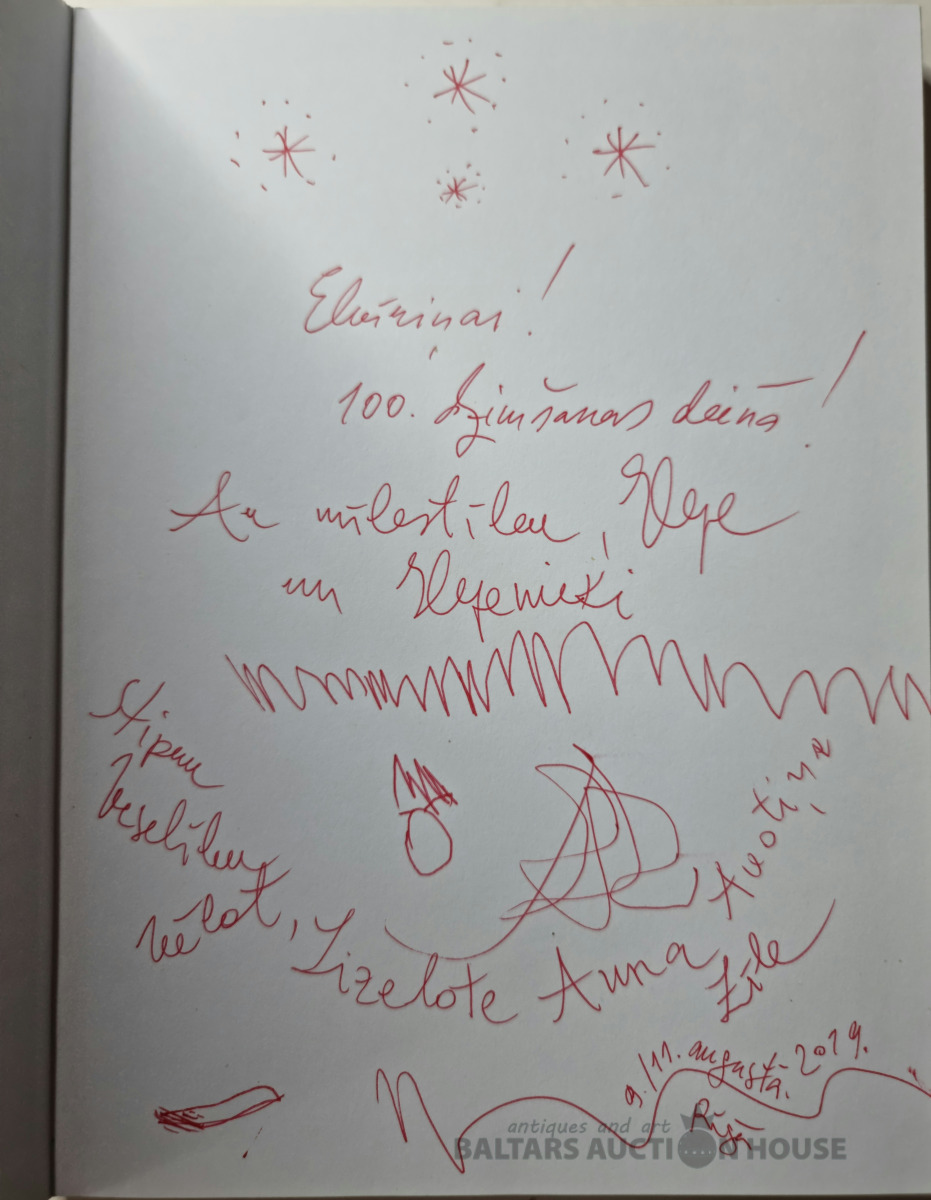 100. dzimšanas dienā!
Ar mīlestību,
un
Stipru
veselību
vēlot, Lizelote Anna
Auotiņa
Zīle
9./11. augustā 2019.
Rīgā
antiques and art
BALTARS AUCTION HOUSE